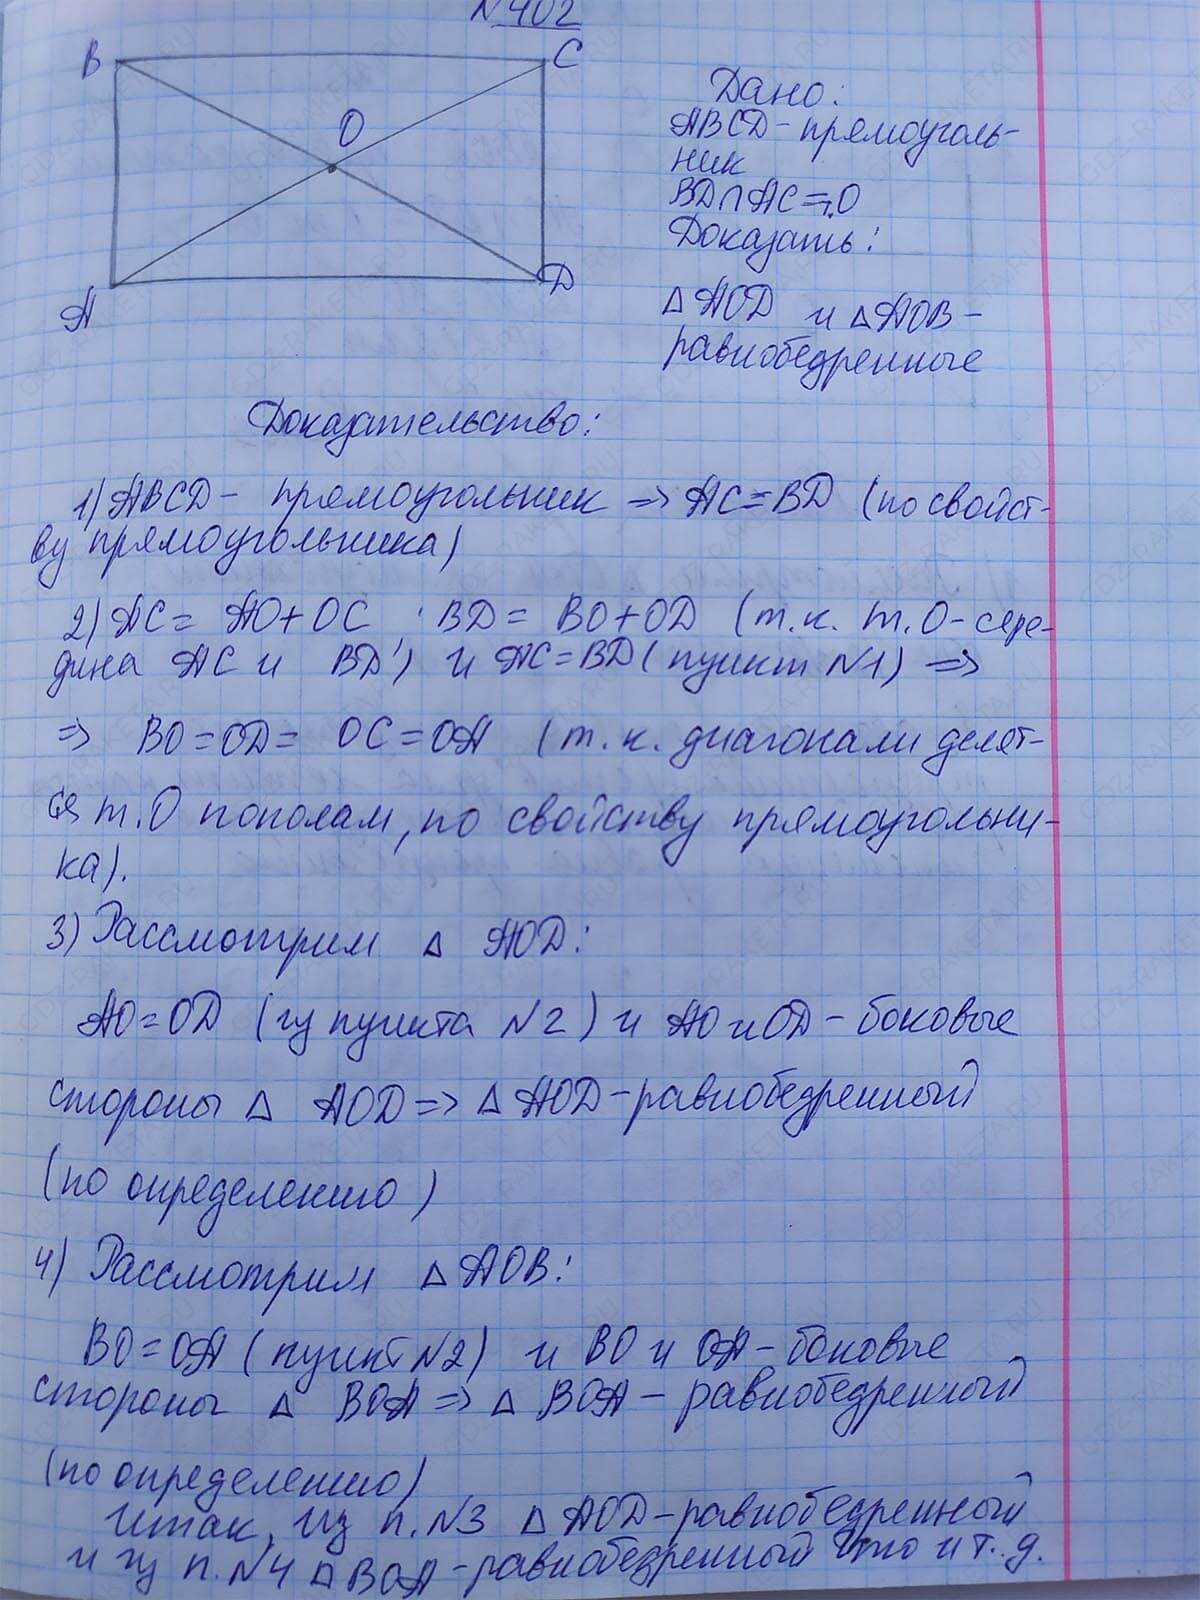 №402
B
C
O
A
D
Дано:
ABCD - прямоуголь-
ник
BD∩AC=т.O
Доказать:
△AOD и △AOB -
равнобедренные
Доказательство:
1) ABCD - прямоугольник => AC=BD (по свойст-
ву прямоугольника)
2) AC= AO+OC BD= BO+OD (т.к. т.O-сере-
дина AC и BD) и AC=BD (пункт №1) =>
=> BO=OD= OC=OA (т.к. диагонали делят-
ся т.O пополам, по свойству прямоугольни-
ка).
3) Рассмотрим △ AOD:
AO=OD (из пункта №2) и AO и OD - боковые
стороны △ AOD => △ AOD - равнобедренный
(по определению)
4) Рассмотрим △AOB:
BO=OA (пункт №2) и BO и OA - боковые
стороны △ BOA => △ BOA - равнобедренный
(по определению)
Итак, из п.№3 △ AOD - равнобедренный
и из п.№4 △ BOA - равнобедренный что и т.д.